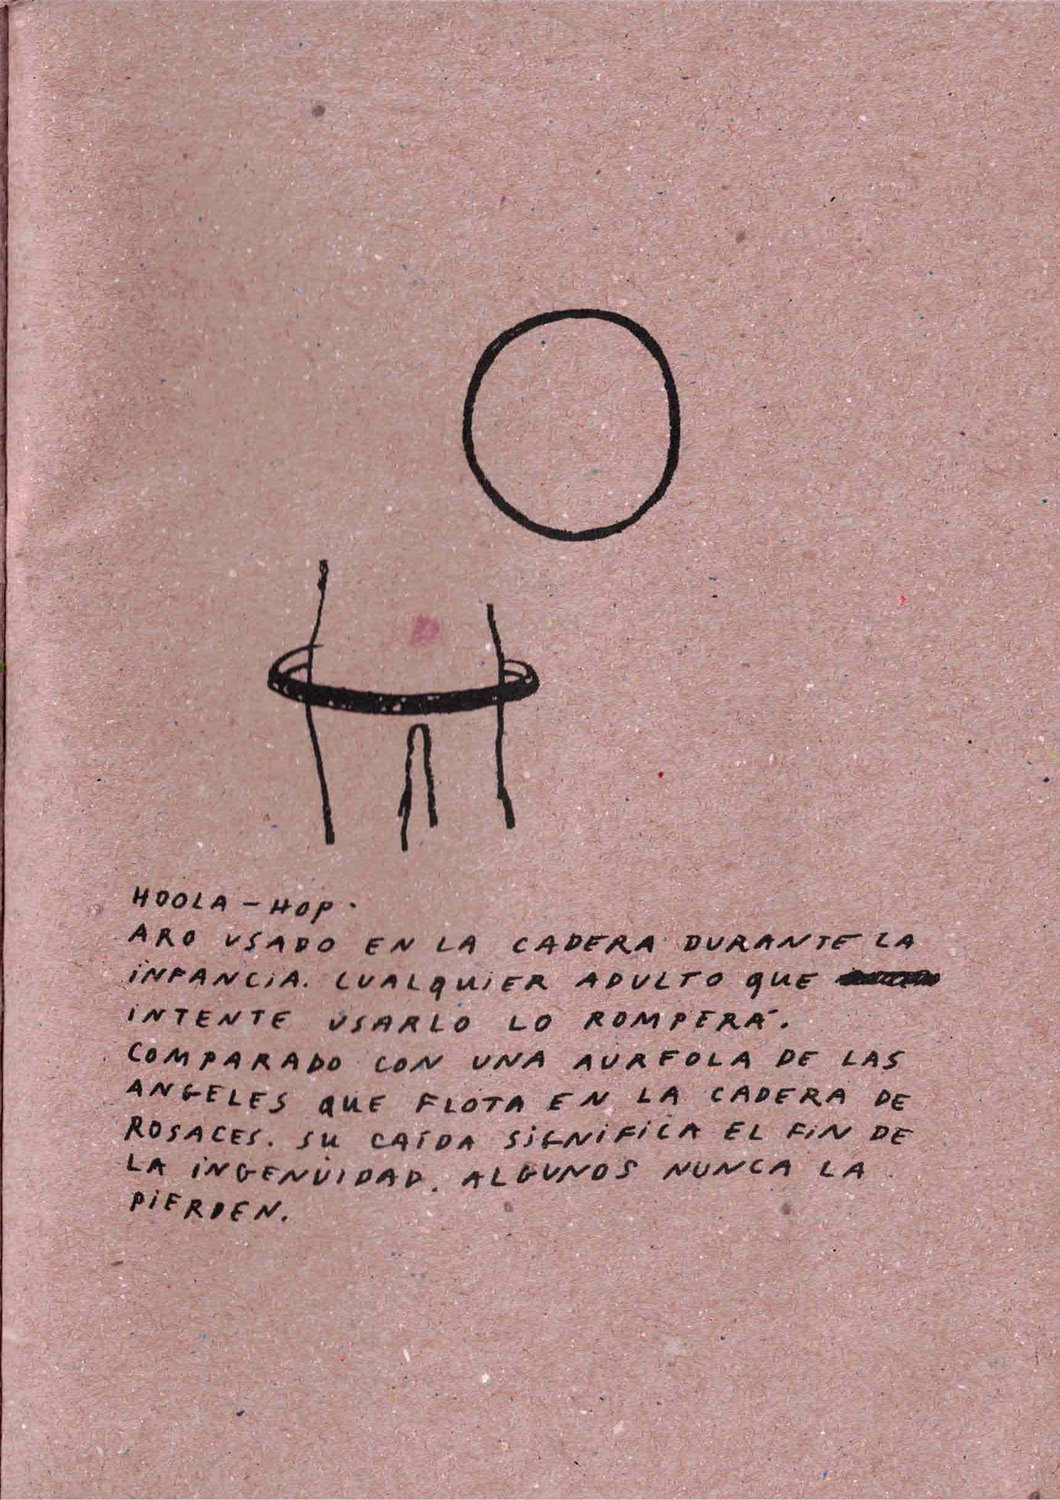 HOOLA-HOP.
ARO USADO EN LA CADERA DURANTE LA
INFANCIA. CUALQUIER ADULTO QUE
INTENTE USARLO LO ROMPERÁ.
COMPARADO CON UNA AUREOLA DE LAS
ANGELES QUE FLOTA EN LA CADERA DE
ROSACES. SU CAÍDA SIGNIFICA EL FIN DE
LA INGENÜIDAD. ALGUNOS NUNCA LA
PIERDEN.